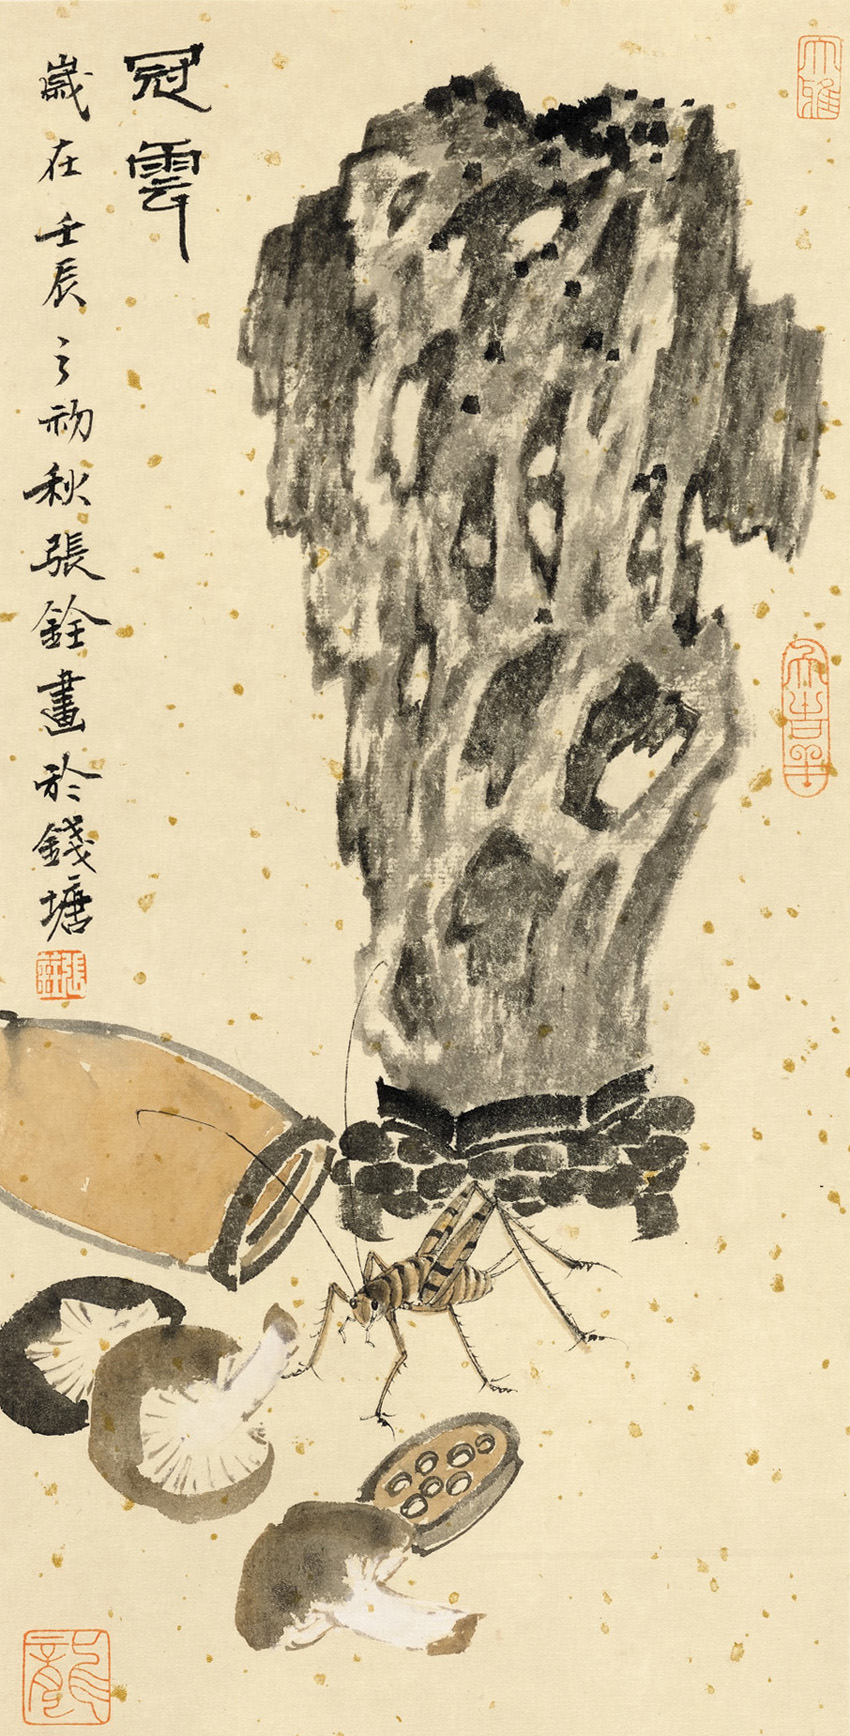 冠雲
歲在壬辰之初秋張銓畫於錢塘
大雅